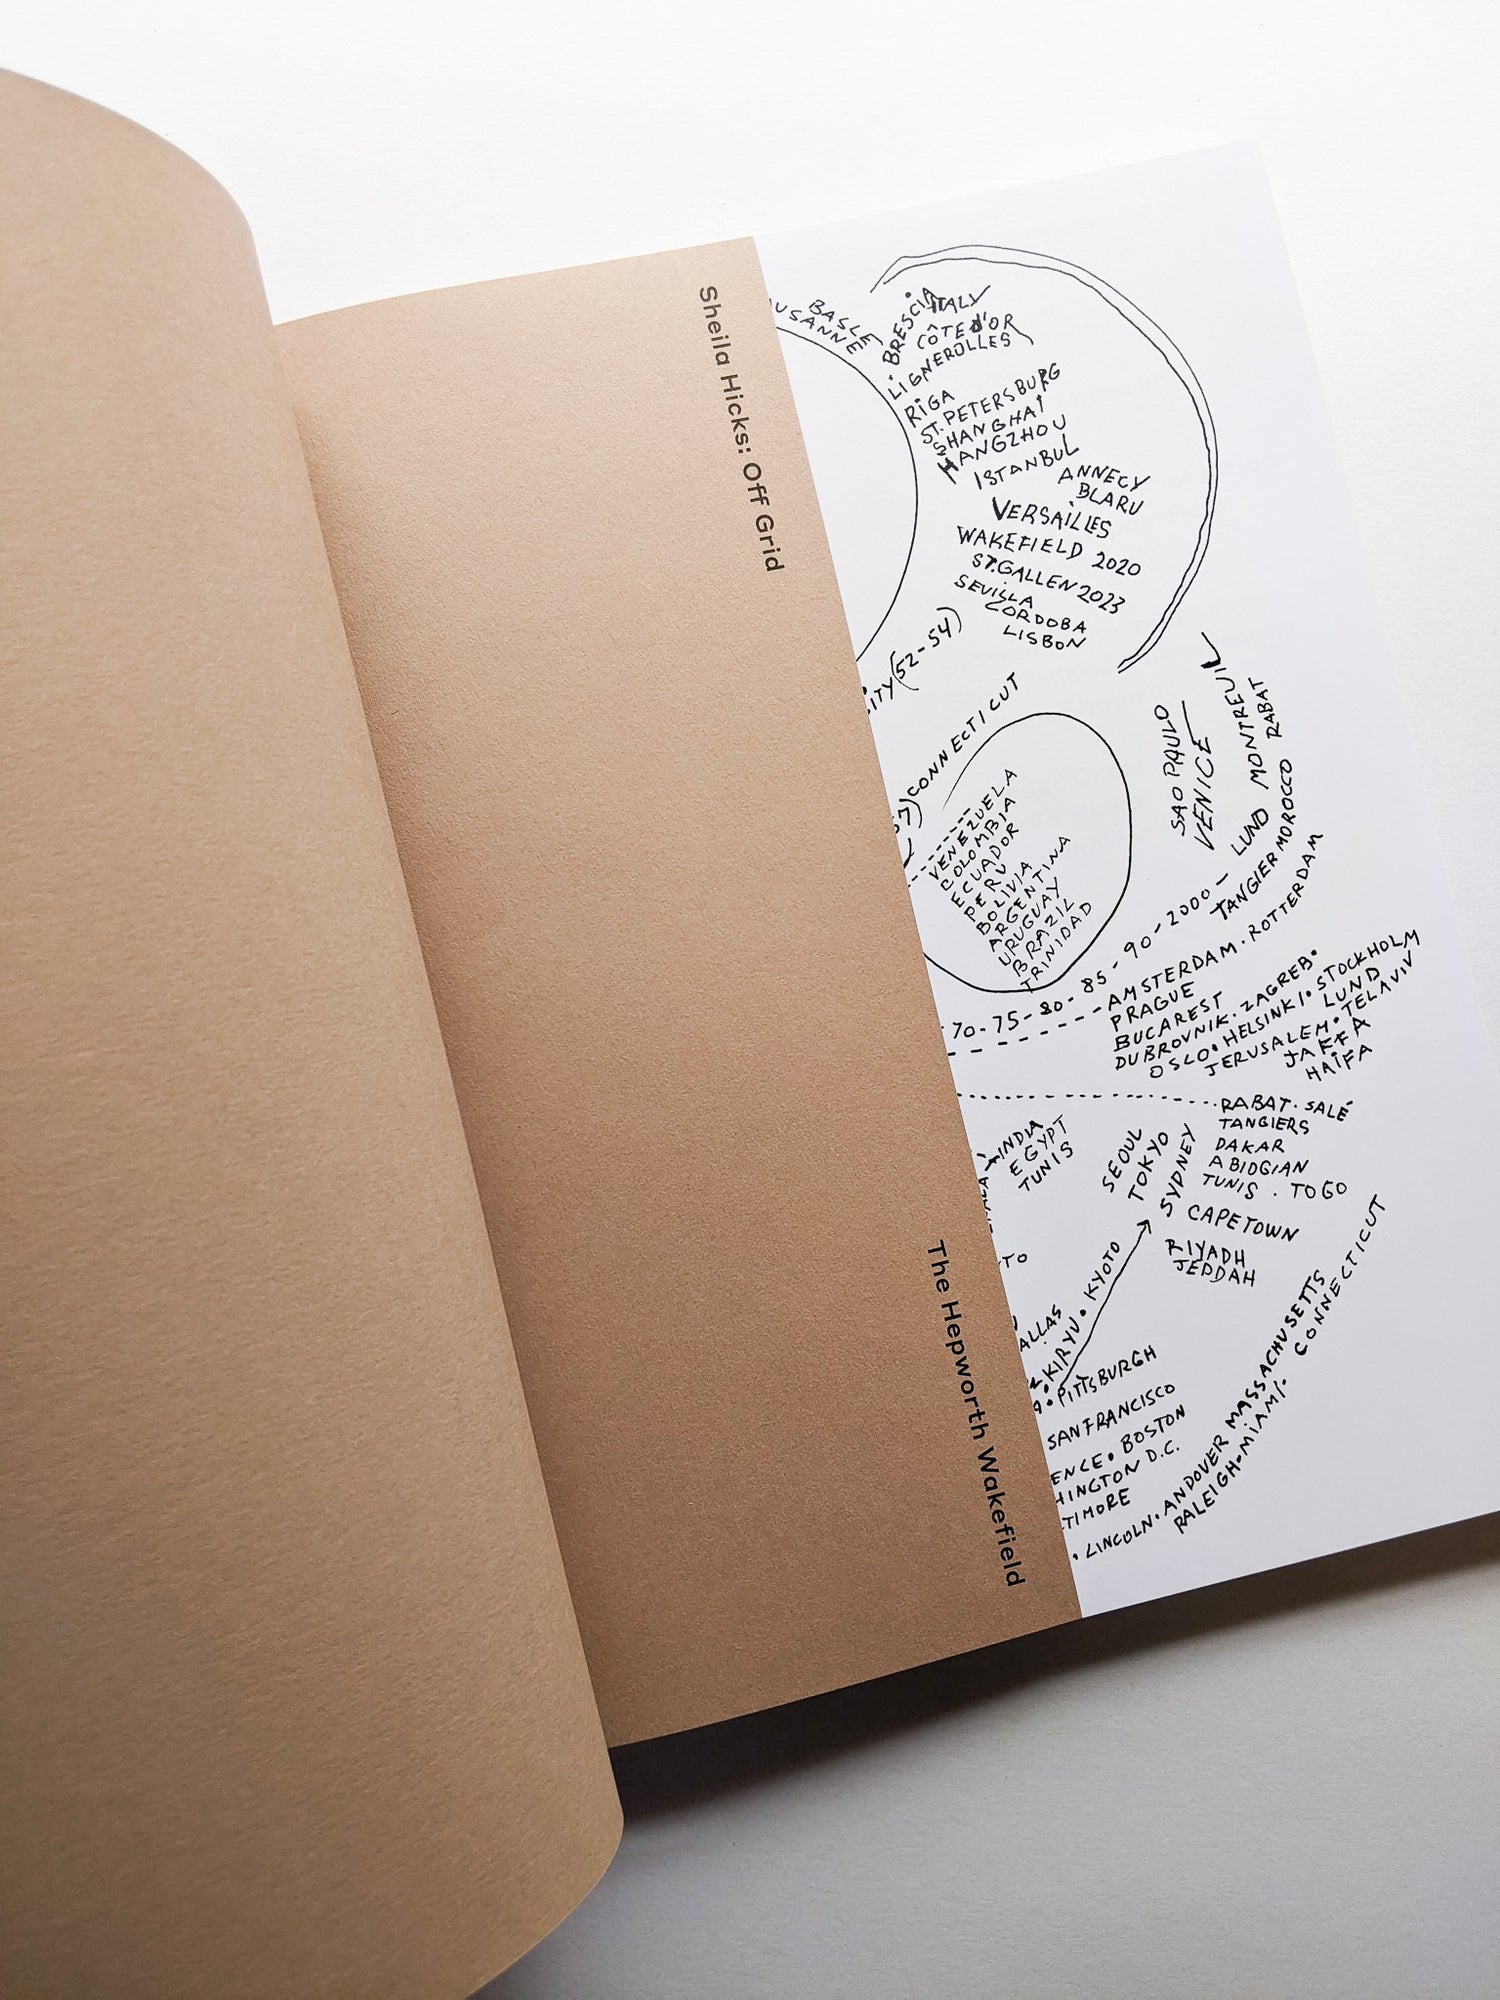 Sheila Hicks: Off Grid
The Hepworth Wakefield
BASLE
USANNE
BRESCIA
ITALY
CÔTE d'OR
LIGNEROLLES
RIGA
ST. PETERSBURG
SHANGHAI
HANGZHOU
ISTANBUL
ANNECY
BLARU
VERSAILLES
WAKEFIELD 2020
ST. GALLEN 2023
SEVILLA
CORDOBA
LISBON
SITY (52-54)
CONNECTICUT
VENEZUELA
COLOMBIA
ECUADOR
PERU
BOLIVIA
ARGENTINA
URUGUAY
BRAZIL
TRINIDAD
SAO PAULO
VENICE
LUND MONTREUIL
TANGIER MOROCCO RABAT
70-75-80-85-90-2000-
AMSTERDAM . ROTTERDAM
PRAGUE
BUCAREST
DUBROVNIK. ZAGREB.
OSLO. HELSINKI. STOCKHOLM
LUND
JERUSALEM. TEL AVIV
JAFFA
HAÏFA
RABAT. SALÉ
TANGIERS
DAKAR
ABIDGIAN
TUNIS . TOGO
CAPETOWN
RIYADH
JEDDAH
INDIA
EGYPT
TUNIS
SEOUL
TOKYO
SYDNEY
TO
ALLAS
KIRYU. KYOTO
A. PITTSBURGH
SAN FRANCISCO
ENCE. BOSTON
HINGTON D.C.
TIMORE
. LINCOLN. ANDOVER MASSACHUSETTS
RALEIGH. MIAMI. CONNECTICUT